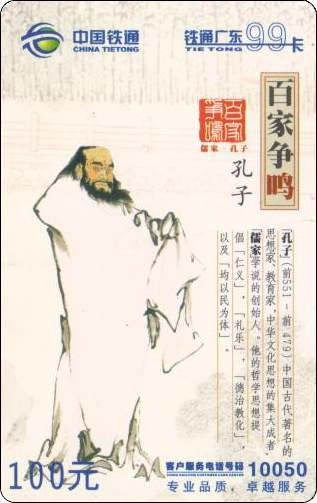 中国铁通
CHINA TIETONG
铁通广东
TIE TONG
99卡
百家争鸣
百家争鸣
儒家·孔子
孔子
「孔子」(前551-前479)中国古代著名的
思想家、教育家，中华文化思想的集大成者，
「儒家」学说的创始人。他的哲学思想提
倡「仁义」，「礼乐」，「德治教化」，
以及「均以民为体」。
100元
客户服务电话号码 10050
专业品质，卓越服务